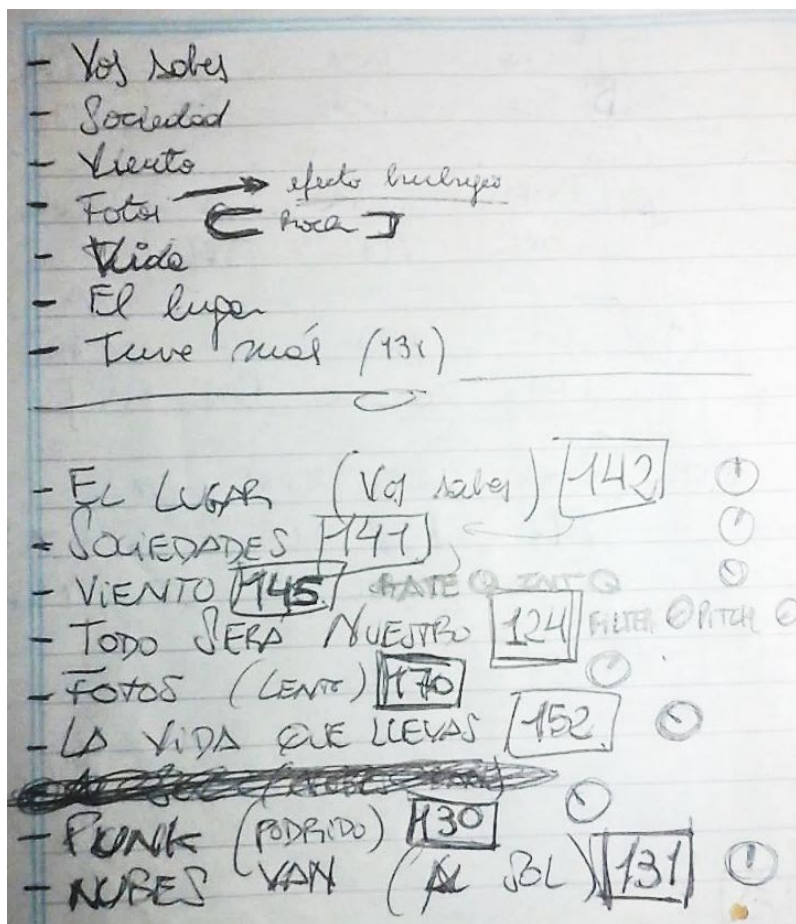 - Vos sabes
- Sociedad
- Viento
efecto burbujeo
- Fotos
- Vida
- El lugar
- Tuve más (131)
- EL LUGAR (Vos sabes) 142
- SOCIEDADES 141
- VIENTO 145 RATE INT
- TODO SERÁ NUESTRO 124 FILTER PITCH
- FOTOS (LENTO) 170
- LA VIDA QUE LLEVAS 152
- PUNK (PODRIDO) 130
- NUBES VAN (AL SOL) 131